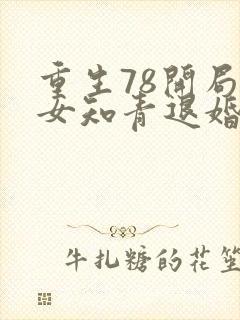 重生78開局
女知青退婚
牛扎糖的花笙